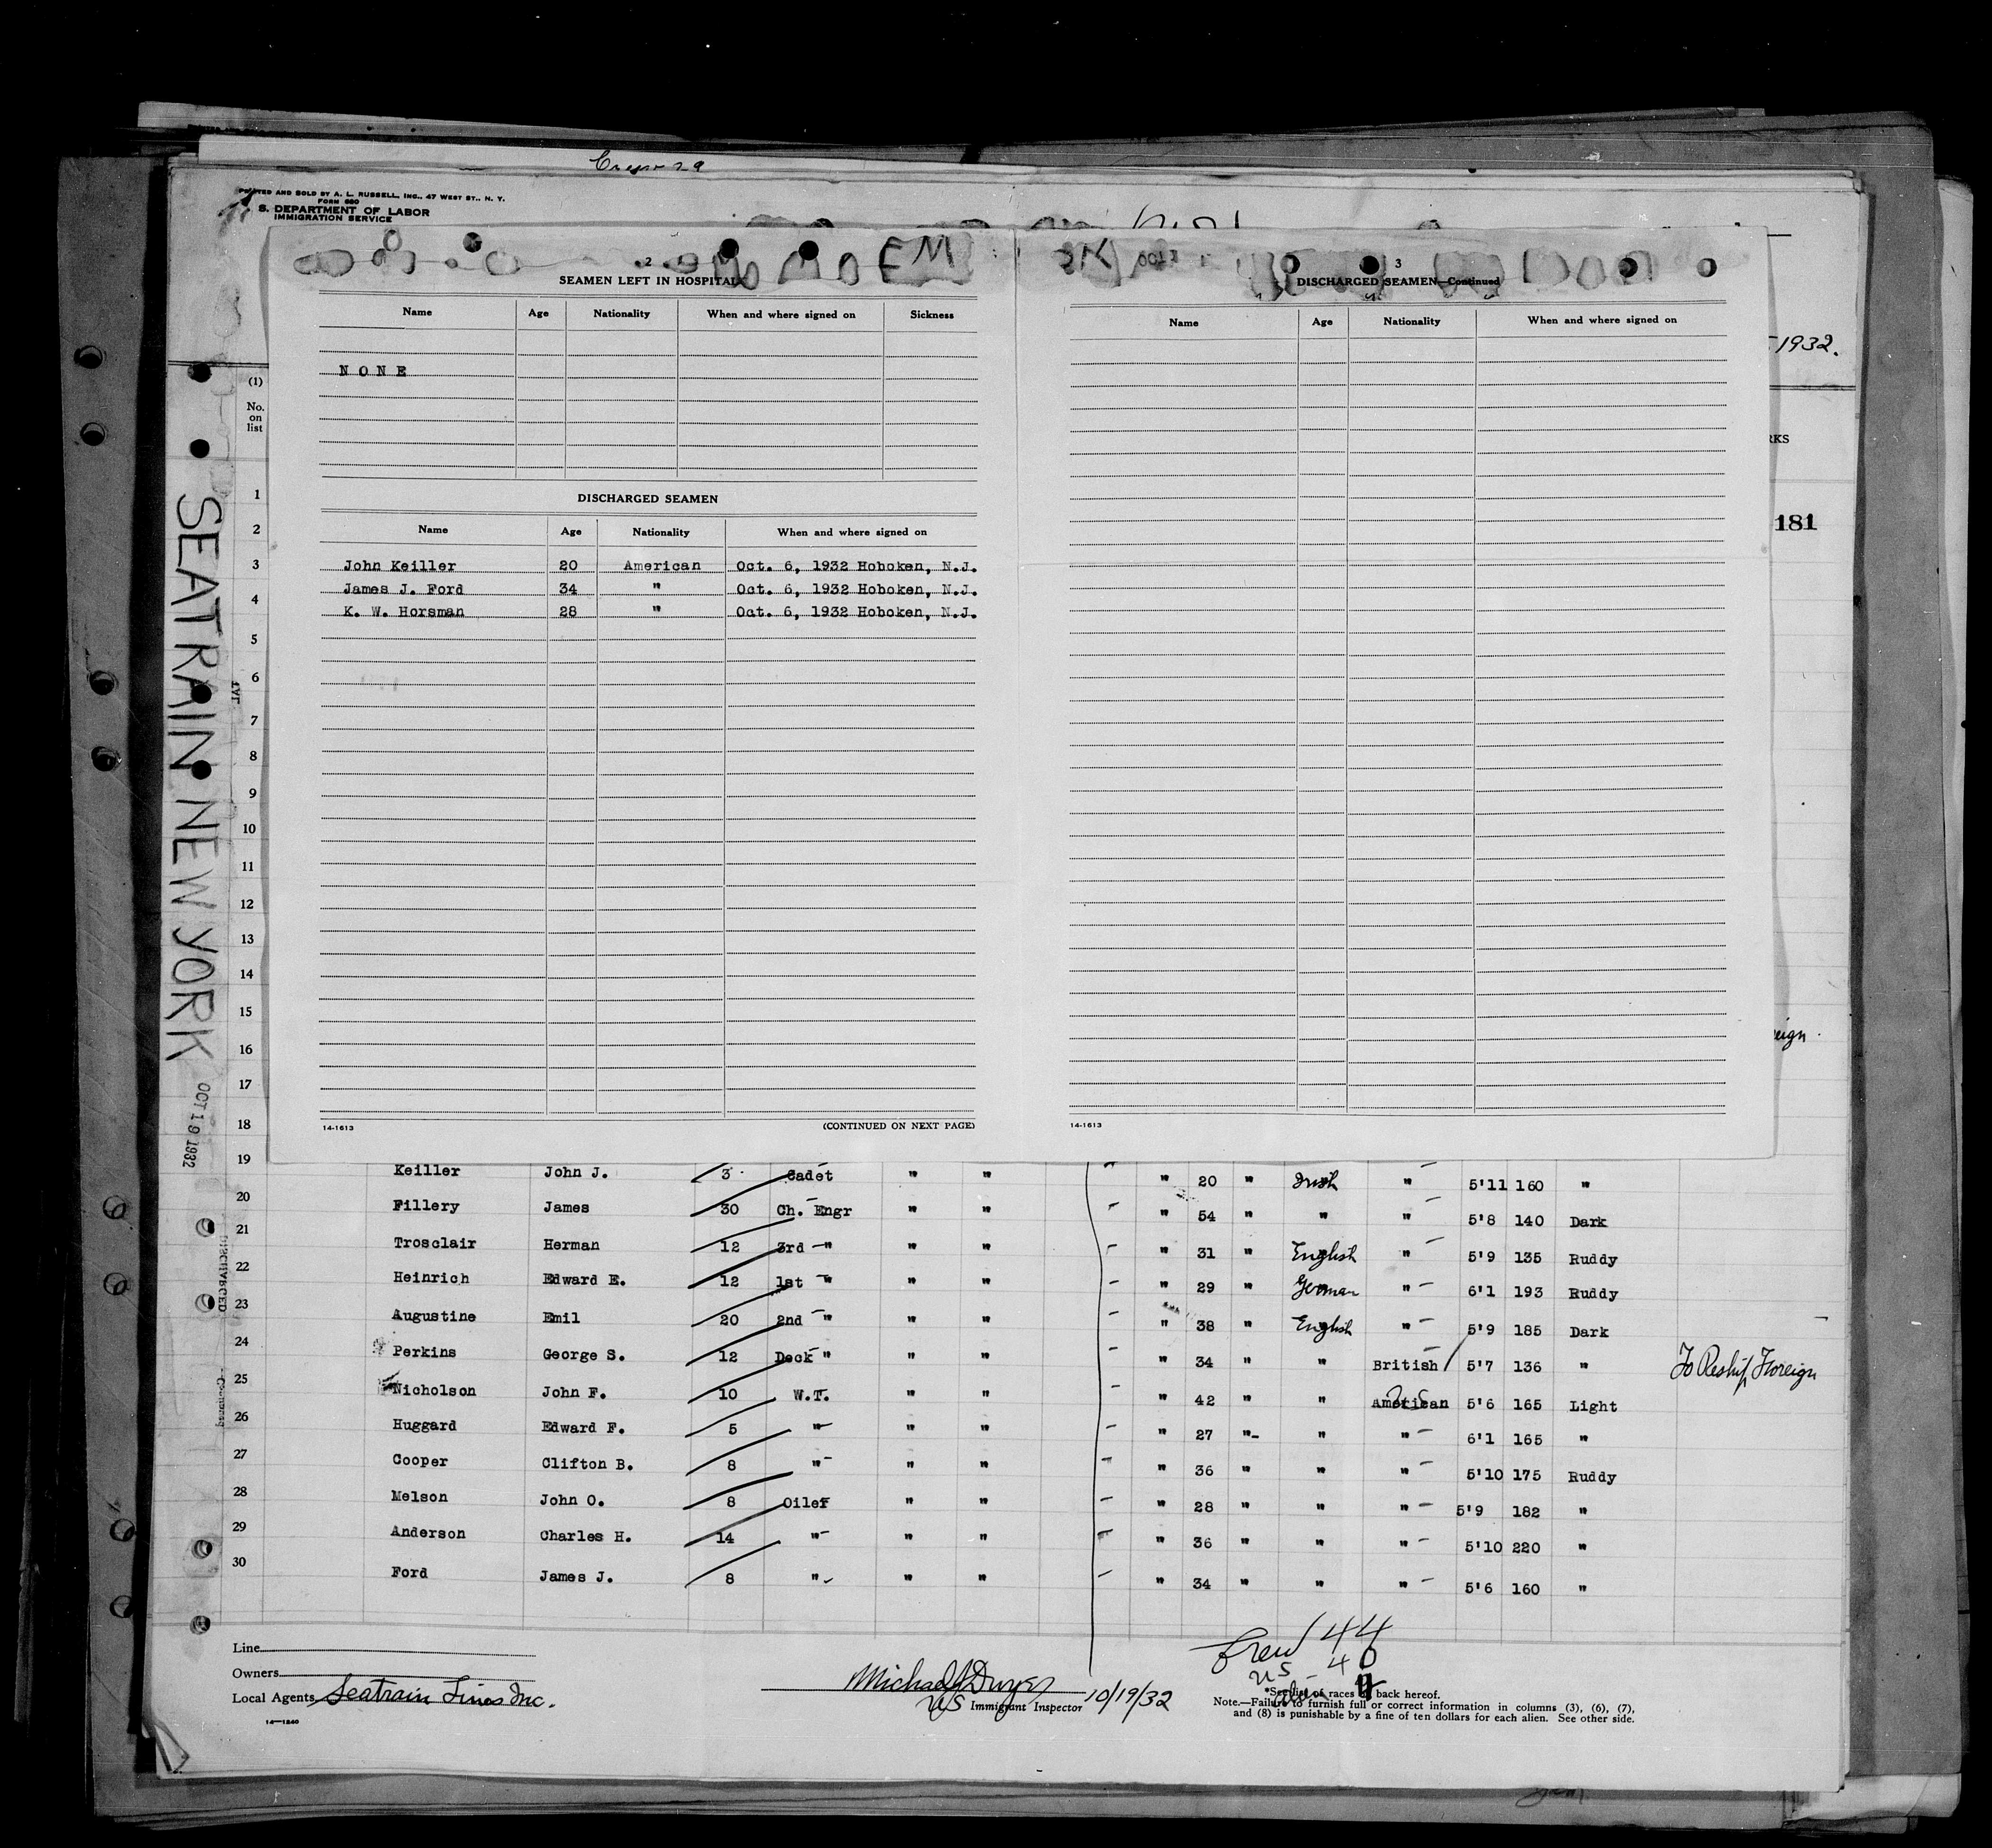 Crew 29
PRINTED AND SOLD BY A. L. RUSSELL, INC., 47 WEST ST., N. Y.
FORM 680
S. DEPARTMENT OF LABOR
IMMIGRATION SERVICE
EM
2
SEAMEN LEFT IN HOSPITAL
Name Age Nationality When and where signed on Sickness
NONE
DISCHARGED SEAMEN
Name Age Nationality When and where signed on
John Keiller 20 American Oct. 6, 1932 Hoboken, N.J.
James J. Ford 34 " Oct. 6, 1932 Hoboken, N.J.
K. W. Horsman 28 " Oct. 6, 1932 Hoboken, N.J.
14-1613 (CONTINUED ON NEXT PAGE)
3
DISCHARGED SEAMEN—Continued
Name Age Nationality When and where signed on
14-1613
1932.
RKS
181
eign
(1)
No.
on
list
1
2
3
4
5
6
7
8
9
10
11
12
13
14
15
16
17
18
SEATRAIN NEW YORK
OCT 19 1932
DISCHARGED
19 Keiller John J. 3 Cadet " " " 20 " Irish " 5'11 160 "
20 Fillery James 30 Ch. Engr " " " 54 " " " 5'8 140 Dark
21 Trosclair Herman 12 3rd " " " " 31 " English " 5'9 135 Ruddy
22 Heinrich Edward E. 12 1st " " " " 29 " German " 6'1 193 Ruddy
23 Augustine Emil 20 2nd " " " " 38 " English " 5'9 185 Dark
24 Perkins George S. 12 Deck " " " " 34 " " British 5'7 136 " To Reship Foreign
25 Nicholson John F. 10 W.T. " " " 42 " " American 5'6 165 Light
26 Huggard Edward F. 5 " " " " 27 " " " 6'1 165 "
27 Cooper Clifton B. 8 " " " " 36 " " " 5'10 175 Ruddy
28 Melson John O. 8 Oiler " " " 28 " " " 5'9 182 "
29 Anderson Charles H. 14 " " " " 36 " " " 5'10 220 "
30 Ford James J. 8 " " " " 34 " " " 5'6 160 "
Crew 44
US 40
alien 4
Line
Owners
Local Agents Seatrain Lines Inc.
14—1240
Michael J Dwyer
US Immigrant Inspector 10/19/32
*See list of races on back hereof.
Note.—Failure to furnish full or correct information in columns (3), (6), (7),
and (8) is punishable by a fine of ten dollars for each alien. See other side.